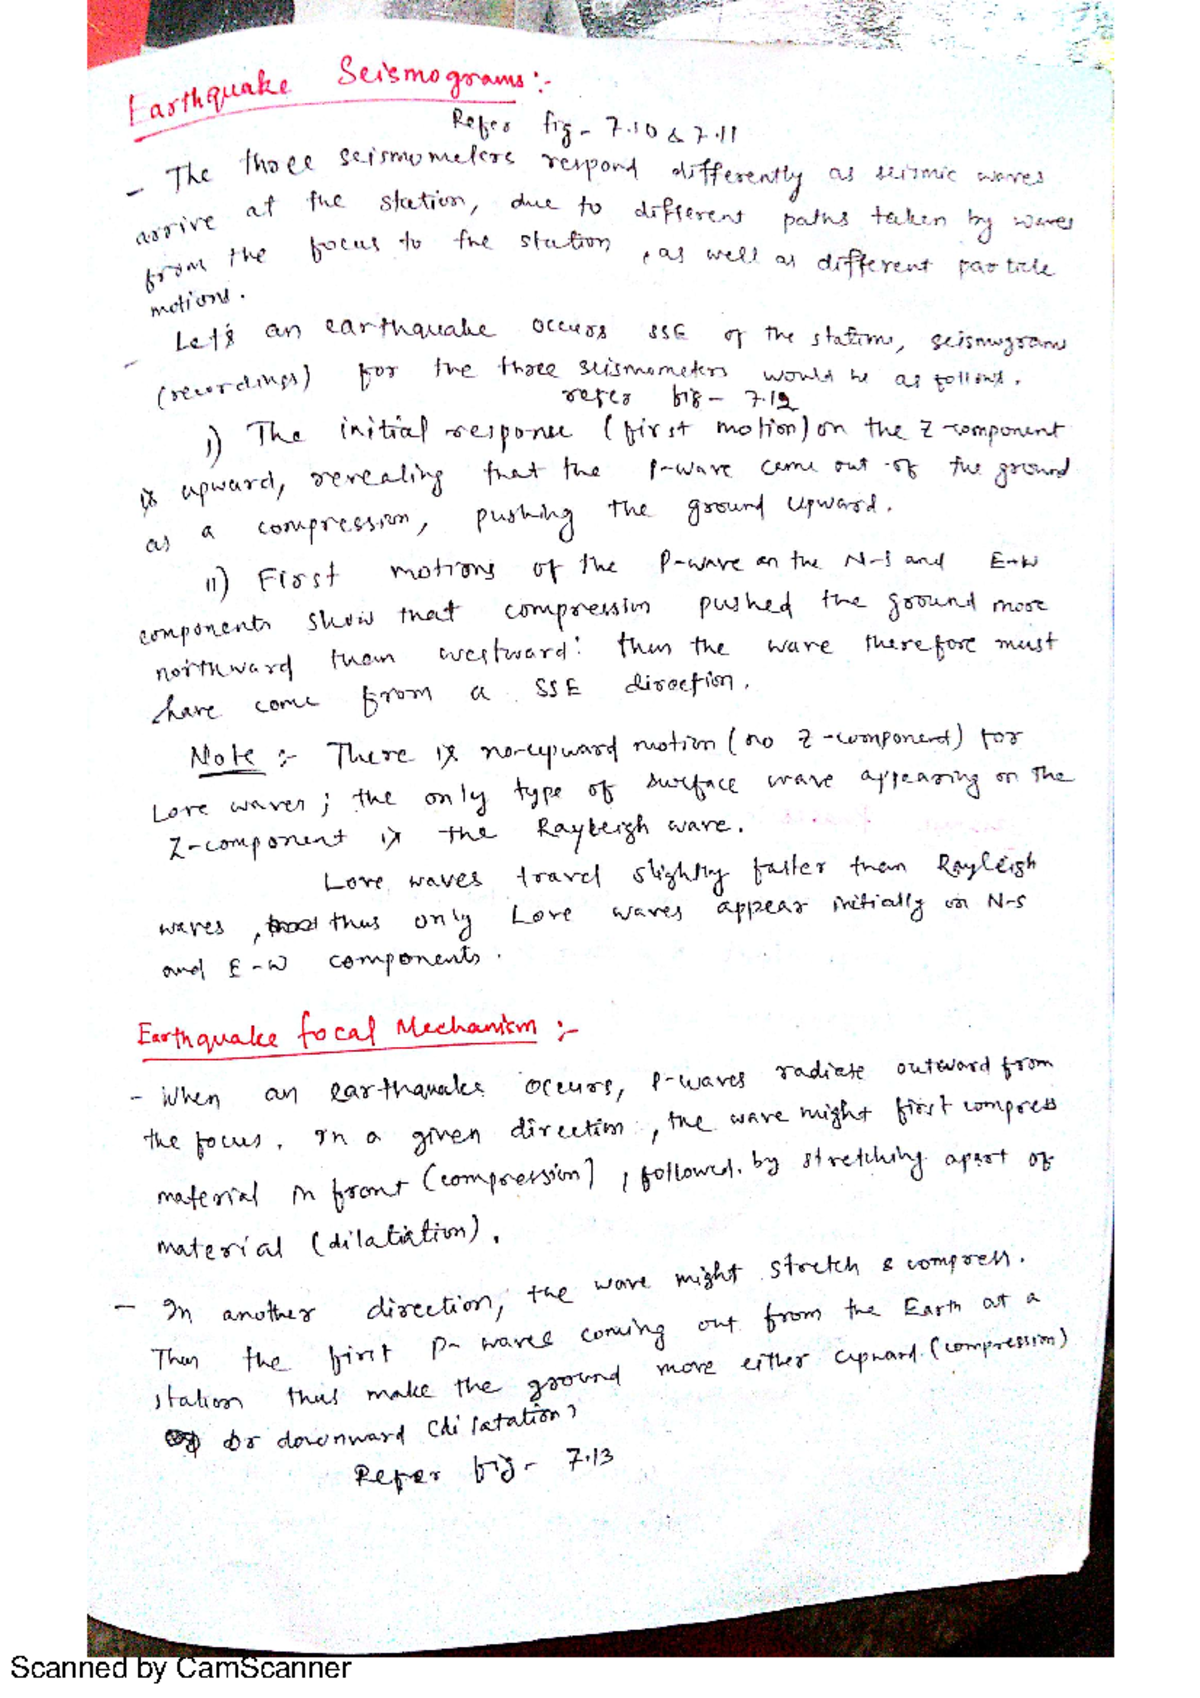 Earthquake Seismograms :-
Refer fig - 7.10 & 7.11
- The three seismometers respond differently as seismic waves
arrive at the station, due to different paths taken by waves
from the focus to the station, as well as different particle
motions.
- Let's an earthquake occurs SSE of the station, seismograms
(recordings) for the three seismometers would be as follows.
refer fig - 7.12
i) The initial response (first motion) on the Z-component
is upward, revealing that the P-wave came out of the ground
as a compression, pushing the ground upward.
ii) First motions of the P-wave on the N-S and E-W
components show that compression pushed the ground more
northward than westward: then the wave therefore must
have come from a SSE direction.
Note :- There is no-upward motion (no Z-component) for
Love waves; the only type of surface wave appearing on the
Z-component is the Rayleigh wave.
Love waves travel slightly faster than Rayleigh
waves, thus only Love waves appear initially on N-S
and E-W components.
Earthquake focal Mechanism :-
- When an earthquake occurs, P-waves radiate outward from
the focus. In a given direction, the wave might first compress
material in front (compression), followed by stretching apart of
material (dilatiation).
- In another direction, the wave might stretch & compress.
Then the first P-waves coming out from the Earth at a
station thus make the ground move either upward (compression)
or downward (dilatation)
Refer fig - 7.13
Scanned by CamScanner